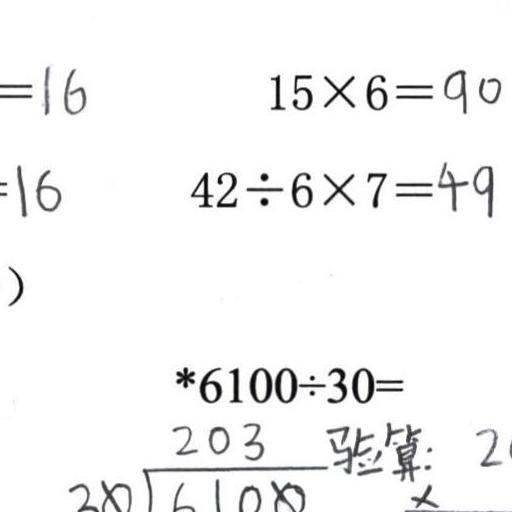 =16 15×6=90
=16 42÷6×7=49
)
*6100÷30=
203 验算: 2
30 6100 ×